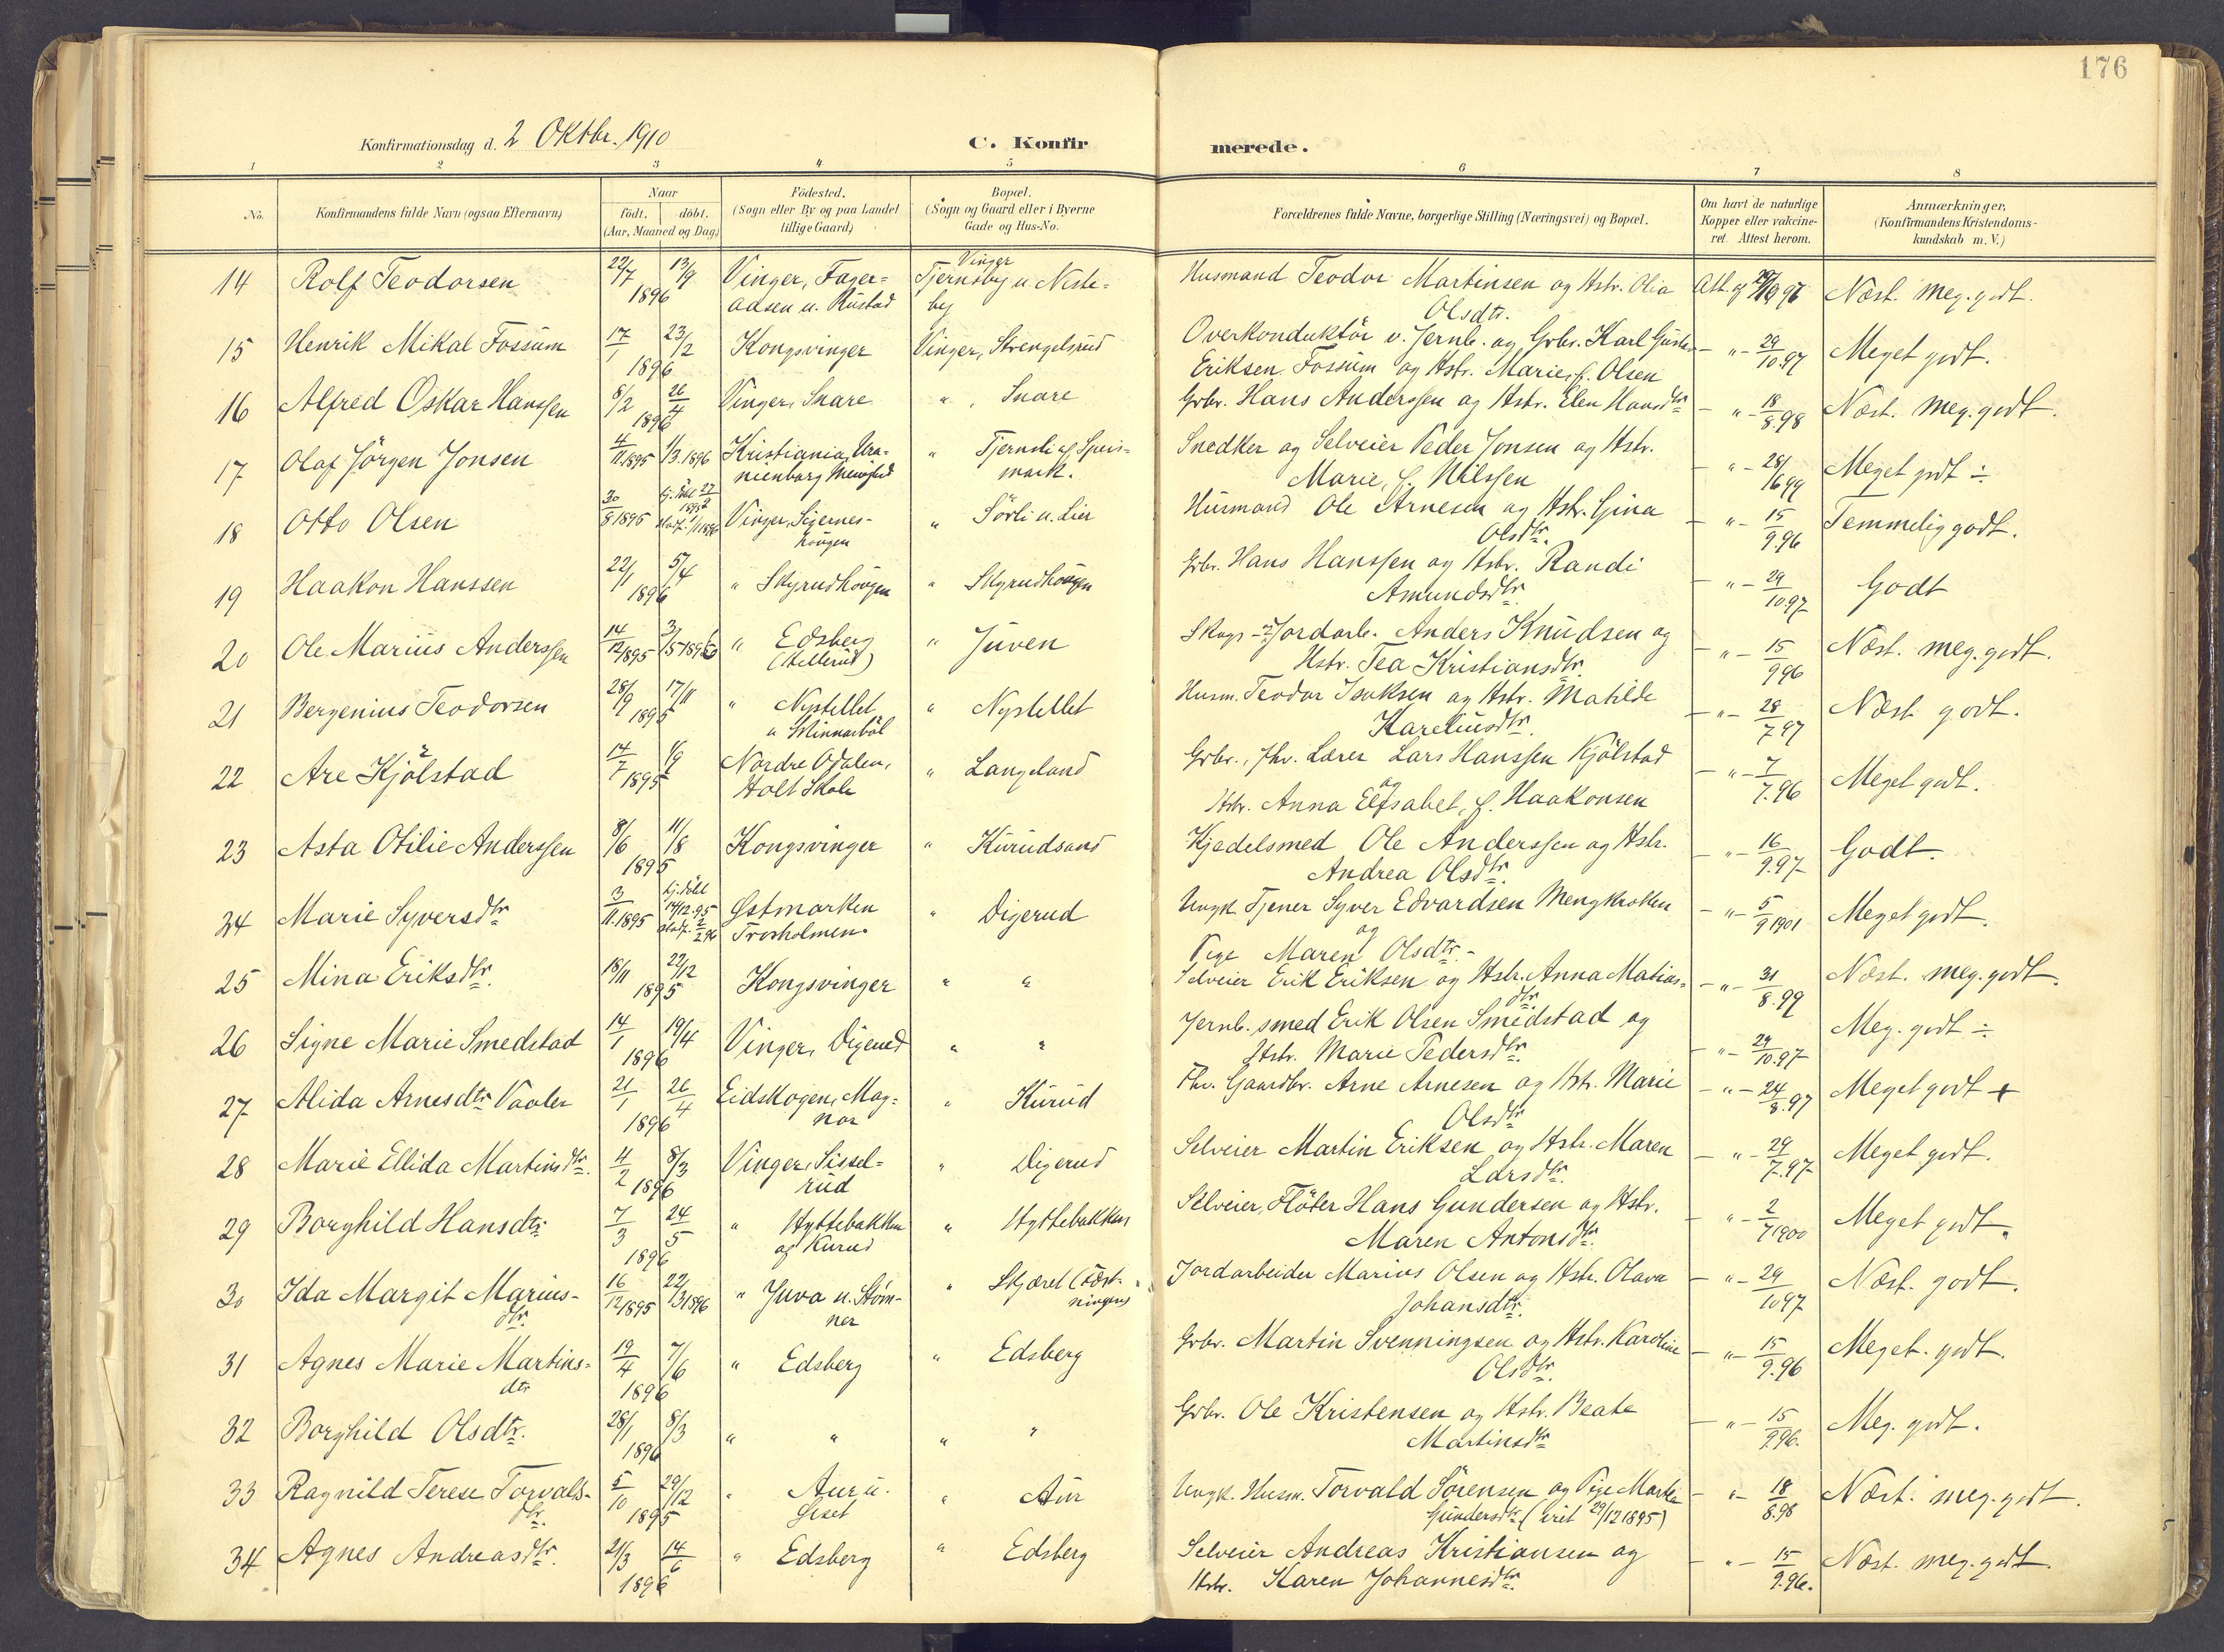 176
Konfirmationsdag d. 2 Oktbr. 1910
C. Konfir
merede.
1 2 3 4 5 6 7 8
No.
Konfirmandens fulde Navn (ogsaa Efternavn)
Naar
födt. döbt.
(Aar, Maaned og Dag)
Födested.
(Sogn eller By og paa Landet
tillige Gaard)
Bopæl.
(Sogn og Gaard eller i Byerne
Gade og Hus-No.
Forældrenes fulde Navne, borgerlige Stilling (Næringsvei) og Bopæl.
Om havt de naturlige
Kopper eller vakcine-
ret. Attest herom.
Anmærkninger.
(Konfirmandens Kristendoms-
kundskab m. V.)
14 Rolf Teodorsen 22/7 13/9 1896 Vinger, Fager= Vinger Tjernsby u. Niste= Husmand Teodor Martinsen og Hstr. Olia Att. af 29/10 97 Næst. meg. godt.
aasen u. Rustad by Olsdtr.
15 Henrik Mikal Fossum 17/1 23/2 1896 Kongsvinger Vinger, Strengelsrud Overkonduktör v. Jernb. og Grbr. Karl Gustav - " - 29/10.97 Meget godt.
Eriksen Fossum og Hstr. Marie, f. Olsen
16 Alfred Oskar Hanssen 8/2 26/4 1896 Vinger, Snare " , Snare Grbr. Hans Anderssen og Hstr. Elen Hansdtr - " - 18/8.98 Næst. meg. godt.
17 Olaf Jörgen Jonsen 4/11.1895 1/3.1896 Kristiania, Ura= " Tjernsli af Speis= Snedker og Selveier Peder Jonsen og Hstr. - " - 28/6 99 Meget godt ÷
nienborg Menighed mark. Marie, f. Nilssen
18 Otto Olsen 30/8 1895 hj. döbt 27/2 1895 stadf. 1/11 1896 Vinger, Sigernes- " Sörli u. Lier Husmand Ole Arnesen og Hstr. Gina - " - 15/9.96 Temmelig godt.
haugen Olsdtr.
19 Haakon Hanssen 22/1 5/4 1896 " Skyrudhaugen " Skyrudhaugen Grbr. Hans Hanssen og Hstr. Randi - " - 29/10 97 Godt
Amundsdtr.
20 Ole Marius Anderssen 14/12 1895 3/5 1896 " Edsberg " Juven Skogs- og Jordarb. Anders Knudsen og - " - 15/9 96 Næst. meg. godt.
(Hellerud) Hstr. Tea Kristiansdtr.
21 Bergenius Teodorsen 28/9 17/11 1895 " Nystellet " Nystellet Husm. Teodor Isaksen og Hstr. Matilde - " - 28/7 97 Næst godt.
u Skinnarböl Kareliusdtr.
22 Are Kjölstad 14/7 1/9 1895 Nordre Odalen, " Langeland Grbr., fhv. Lærer Lars Hanssen Kjölstad - " - 7/7.96 Meget godt.
Holt Skole og
Hstr. Anna Elisabet, f. Haakonsen
23 Asta Otilie Anderssen 8/6 11/8 1895 Kongsvinger " Kurudsand Kjedelsmed Ole Anderssen og Hstr. - " - 16/9.97 Godt.
Andrea Olsdtr.
24 Marie Syversdtr 3/11.1895 hj. döbt 14/12.95 stadf. 2/2 96 Østmarken " Digerud Ungk. Tjener Syver Edvardsen Mengkroken - " - 5/9 1901 Meget godt.
Trosholmen. og
Pige Maren Olsdtr.-
25 Mina Eriksdtr. 18/11 22/12 1895 Kongsvinger " " Selveier Erik Eriksen og Hstr. Anna Matias= - " - 31/8.99 Næst. meg. godt.
dtr.
26 Signe Marie Smedstad 14/1 19/4 1896 Vinger, Digerud " " Jernb. smed Erik Olsen Smedstad og - " - 29/10.97 Meg. godt ÷
Hstr. Marie Pedersdtr.
27 Alida Arnesdtr. Vaaler 21/1 26/4 1896 Eidskogen, Mag= " Kurud Fhv. Gaardbr. Arne Arnesen og Hstr. Marie - " - 24/8.97 Meget godt +
nor Olsdtr
28 Marie Ellida Martinsdtr. 4/2 8/3 1896 Vinger, Sissel= " Digerud Selveier Martin Eriksen og Hstr. Maren - " - 29/7.97 Meget godt.
rud Larsdtr.
29 Borghild Hansdtr. 7/3 24/5 1896 " Hyttebakken " Hyttebakken Selveier, Flöter Hans Gundersen og Hstr. - " - 2/7 1900 Meget godt.
af Kurud Maren Antonsdtr.
30 Ida Margit Marius- 16/12 1895 22/3 1896 " Juva u. Stöm- " Skjæret (Fæst- Jordarbeider Marius Olsen og Hstr. Olava - " - 29/10 97 Næst. godt.
dtr. ner ningen) Johansdtr.
31 Agnes Marie Martins= 19/4 7/6 1896 " Edsberg " Edsberg Grbr. Martin Svenningsen og Hstr. Karoline - " - 15/9.96 Meget. godt.
dtr Olsdtr.
32 Borghild Olsdtr. 28/1 8/3 1896 " " " " Grbr. Ole Kristensen og Hstr. Beate - " - 15/9.96. Meg. godt.
Martinsdtr
33 Ragnild Terese Torvalds- 5/10 29/12 1895 " Aur u. " Aur Ungk. Husm. Torvald Sörensen og Pige Marte - " - 18/8.98 Næst. meg. godt.
dtr. Giset Gundersdtr. ( viet 29/12 1895)
34 Agnes Andreasdtr. 21/3 14/6 1896 " Edsberg " Edsberg Selveier Andreas Kristiansen og - " - 15/9.96. Næst. meg. godt.
Hstr. Karen Johannesdtr.